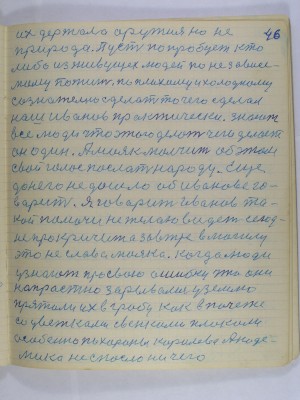 46
их держала оружия но не
природа. Пусть попробует кто
либо из живущех людей по не зависе-
мому пожит, по плахому и холодному
сознательно зделать то чего сделал
наш Иванов практически. знают
все люди что этого делает чего делает
он один. А маяк молчит об этом
свой голос послать народу. Еще
до него не дошло об Иванове го-
ворить. Я говорит Иванов та-
кой помочи не желаю видеть сегод-
ня про кричит а завтре в могилу
это не слова маяка. Когда люди
узнают про свою ошибку что они
напрастно зарывали у землю
прятали их в гробу как в почете
со цветками свежими плакали
особенно похароны Каралева Акаде-
мика не спасло ничего